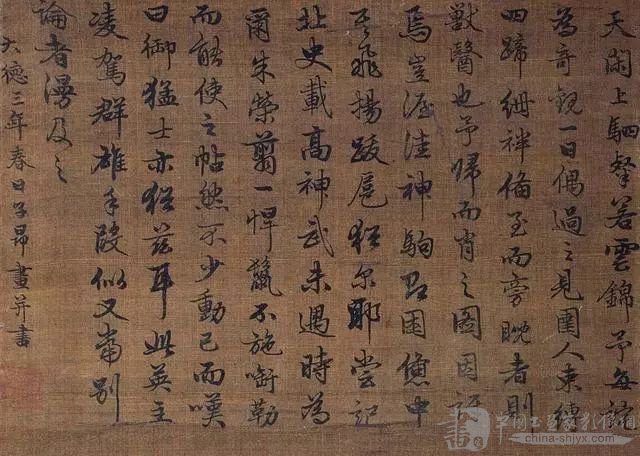 天閑上駟羣若雲錦予每詫
為奇觀一日偶過之見圉人束縛
四蹄絆備至而旁睨者則
獸醫也予歸而肖之圖因
焉豈渥洼神駒困憊中
飛揚跋扈猶尔耶嘗記
北史載高神武未遇時為
爾朱榮翦一悍鬣不施銜勒
而能使之帖然不少動已而嘆
曰御猛士亦猶茲耳此英主
凌駕群雄手段似又當別
論者漫及之
大德三年春日子昂畫并書
china-shiyx.com